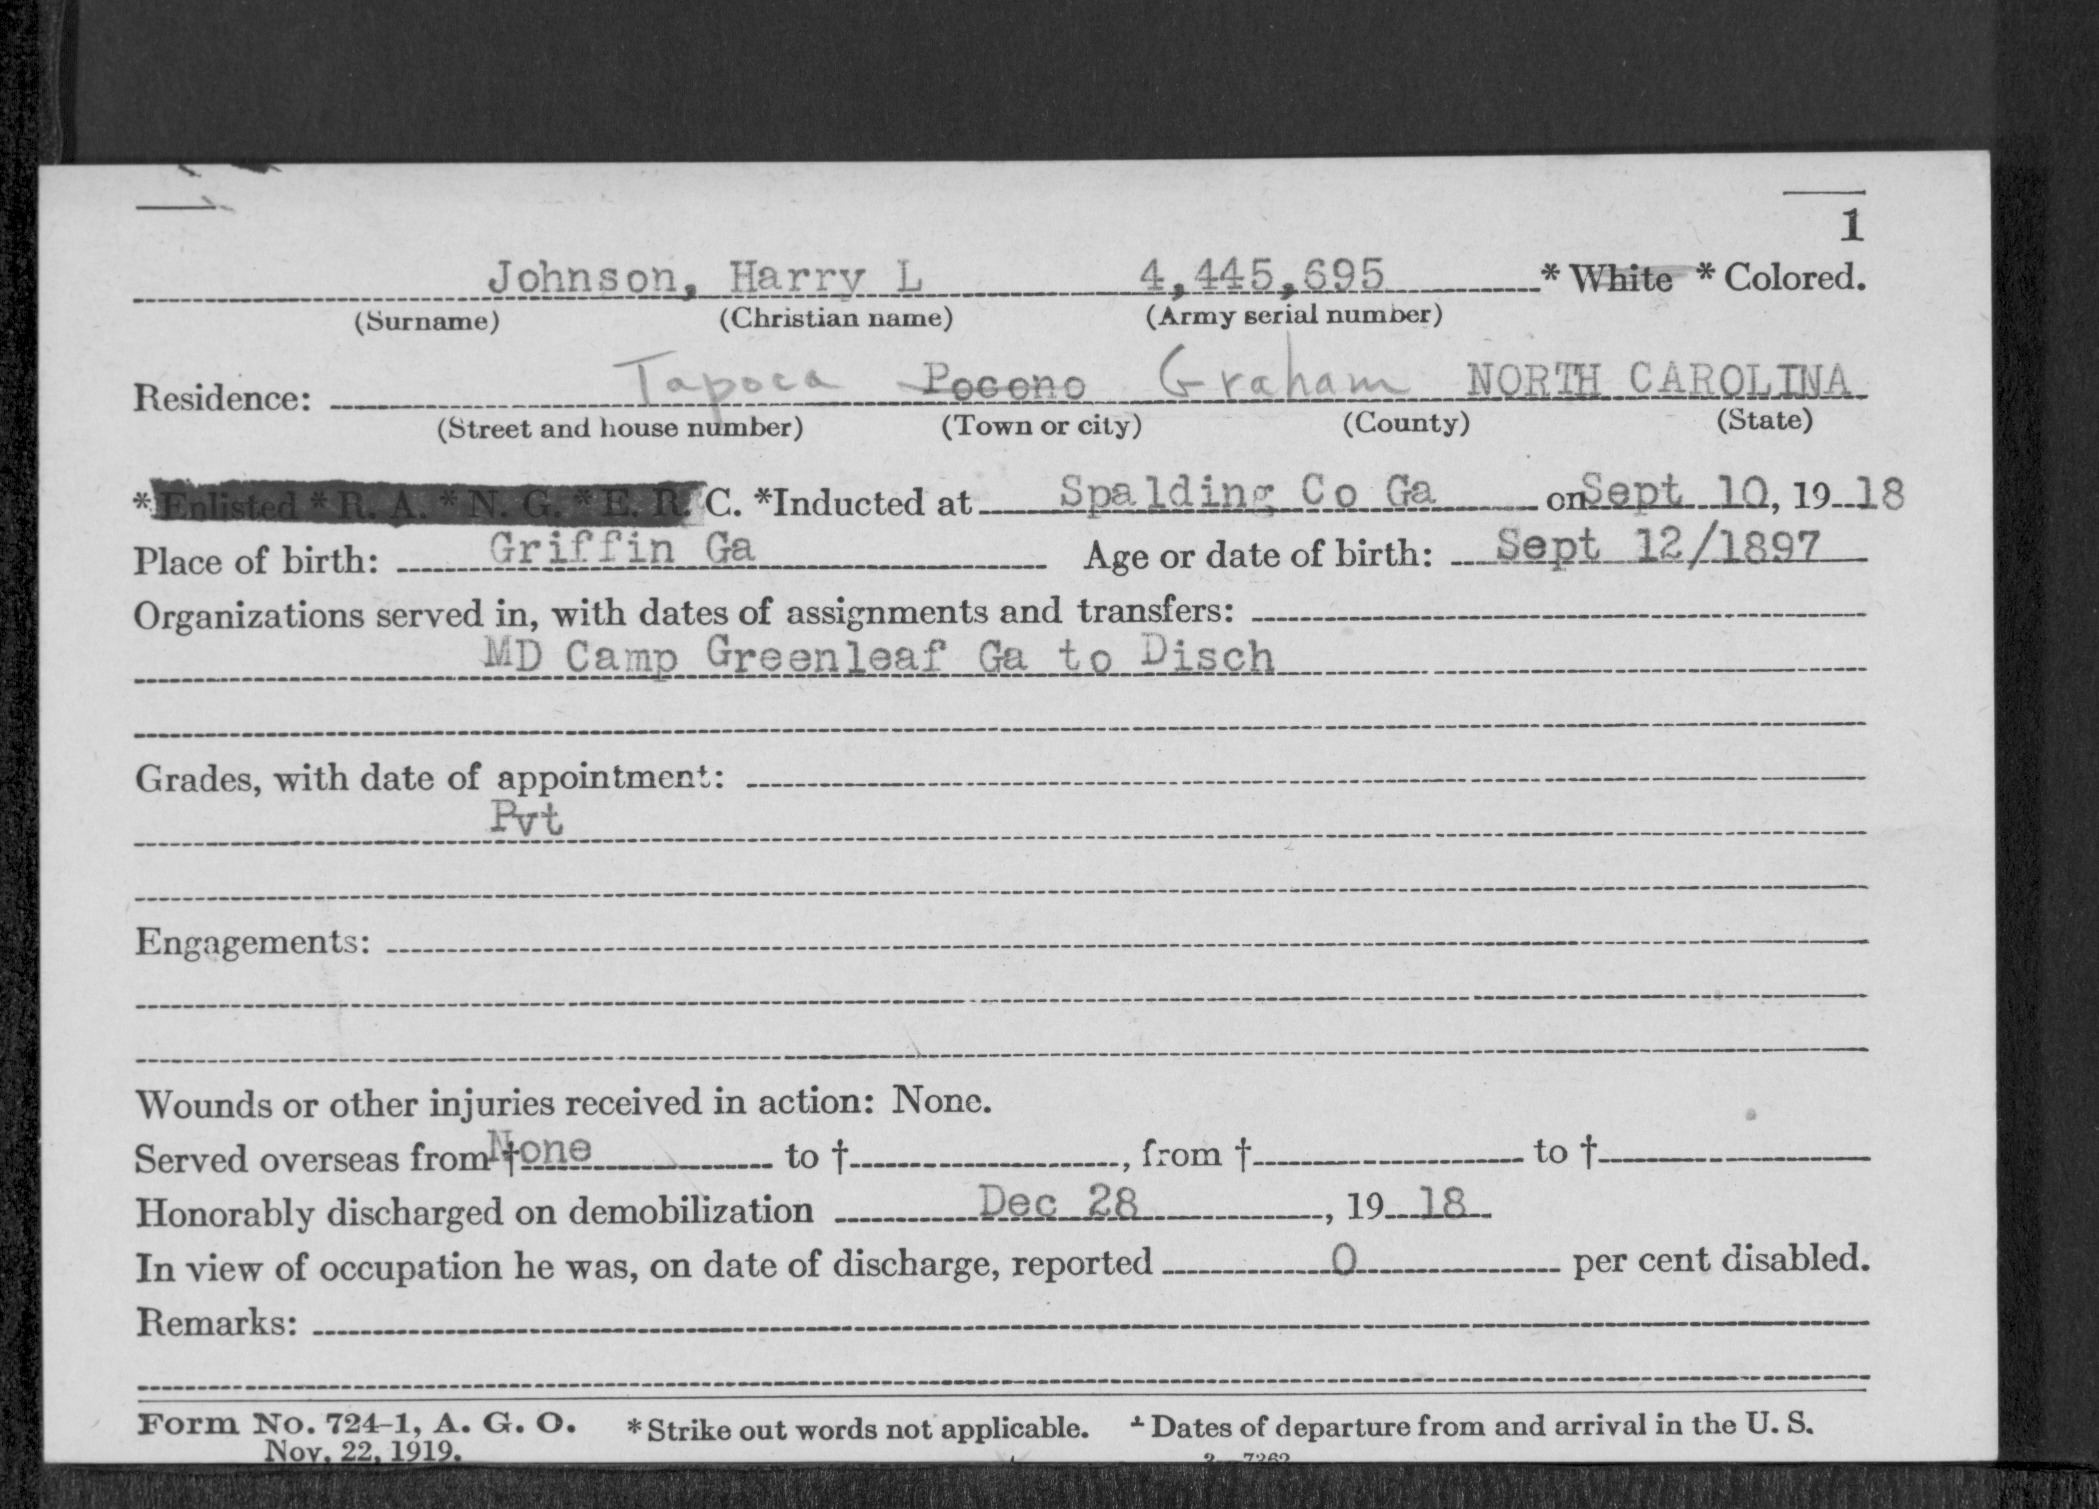 1
Johnson, Harry L 4,445,695 * White * Colored.
(Surname) (Christian name) (Army serial number)
Residence: Tapoca Pocono Graham NORTH CAROLINA
(Street and house number) (Town or city) (County) (State)
* Enlisted * R. A. * N. G. * E. R. C. *Inducted at Spalding Co Ga on Sept 10, 19 18
Place of birth: Griffin Ga Age or date of birth: Sept 12/1897
Organizations served in, with dates of assignments and transfers:
MD Camp Greenleaf Ga to Disch
Grades, with date of appointment:
Pvt
Engagements:
Wounds or other injuries received in action: None.
Served overseas from † None to †, from † to †
Honorably discharged on demobilization Dec 28, 19 18
In view of occupation he was, on date of discharge, reported 0 per cent disabled.
Remarks:
Form No. 724-1, A. G. O. * Strike out words not applicable. † Dates of departure from and arrival in the U. S.
Nov. 22, 1919.